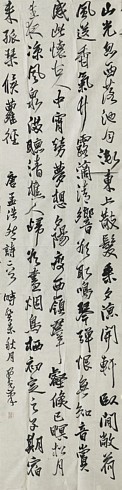 山光忽西落池月漸東上散髮乘夕涼開軒卧閒敞荷
風送香氣竹露滴清響欲取鳴琴彈恨無知音賞
感此懷故人中宵勞夢想夕陽度西嶺群壑倏已暝松月
生夜涼風泉滿清聽樵人歸欲盡烟鳥棲初定之子期宿
來孤琴候蘿徑 唐孟浩然詩二首 時癸未秋月